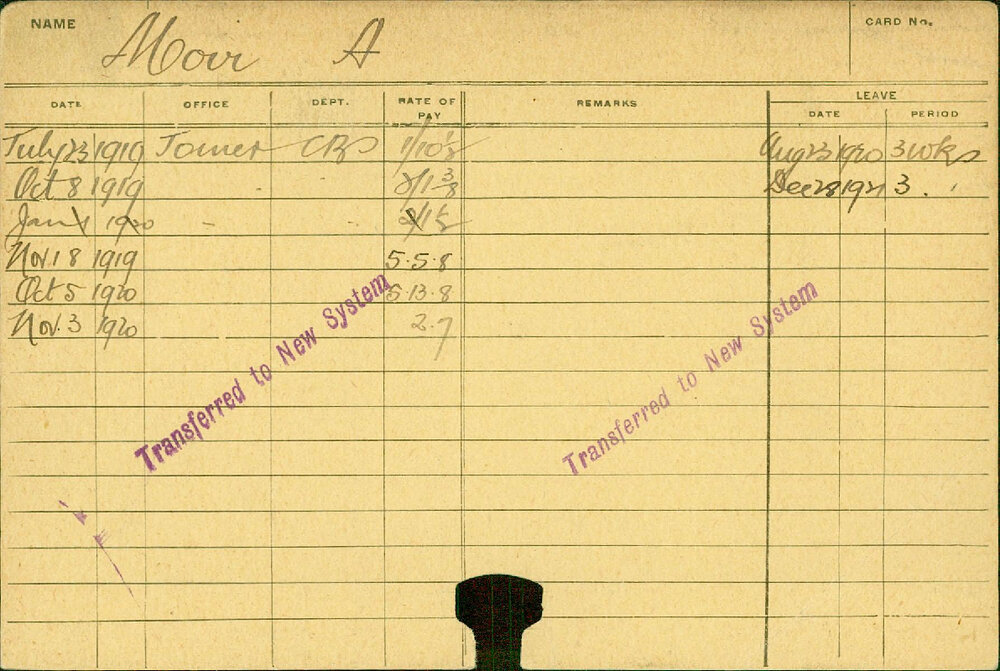 NAME Moir A CARD No.
DATE OFFICE DEPT. RATE OF PAY REMARKS LEAVE
DATE PERIOD
July 23 1919 Joiner CBS 1/10½ Aug 23 1920 3 wks
Oct 8 1919 - - 2/1 3/8 Dec 28 1921 3 . '
Jan 1 1920 - - 2/1½
Nov 18 1919 5.5.8
Oct 5 1920 5.13.8
Nov. 3 1920 2.7
Transferred to New System
Transferred to New System